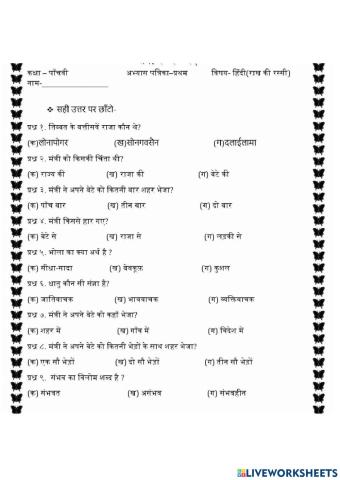 कक्षा – पाँचवी अभ्यास पत्रिका–प्रथम विषय- हिंदी(राख की रस्सी)
नाम-
❖ सही उत्तर पर छाँटो-
प्रश्न १. तिब्बत के बत्तीसवें राजा कौन थे?
(क)लोनापोगर (ख)सोनगवसैन (ग)दलाईलामा
प्रश्न २. मंत्री को किसकी चिंता थी?
(क) राज्य की (ख) राजा की (ग) बेटे की
प्रश्न ३. मंत्री ने अपने बेटे को कितनी बार शहर भेजा?
(क) पाँच बार (ख) तीन बार (ग) दो बार
प्रश्न ४. मंत्री किससे हार गए?
(क) बेटे से (ख) राजा से (ग) लड़की से
प्रश्न ५. भोला का क्या अर्थ है ?
(क) सीधा-सादा (ख) बेवकूफ़ (ग) कुशल
प्रश्न ६. धातु कौन सी संज्ञा है?
(क) जातिवाचक (ख) भाववाचक (ग) व्यक्तिवाचक
प्रश्न ७. मंत्री ने अपने बेटे को कहाँ भेजा?
(क) शहर में (ख) गाँव में (ग) विदेश में
प्रश्न ८. मंत्री ने अपने बेटे को कितनी भेड़ों के साथ शहर भेजा?
(क) एक सौ भेड़ों (ख) दो सौ भेड़ों (ग) तीन सौ भेड़ों
प्रश्न ९. संभव का विलोम शब्द है ?
(क) संभवत (ख) असंभव (ग) संभवहीन
LIVEWORKSHEETS